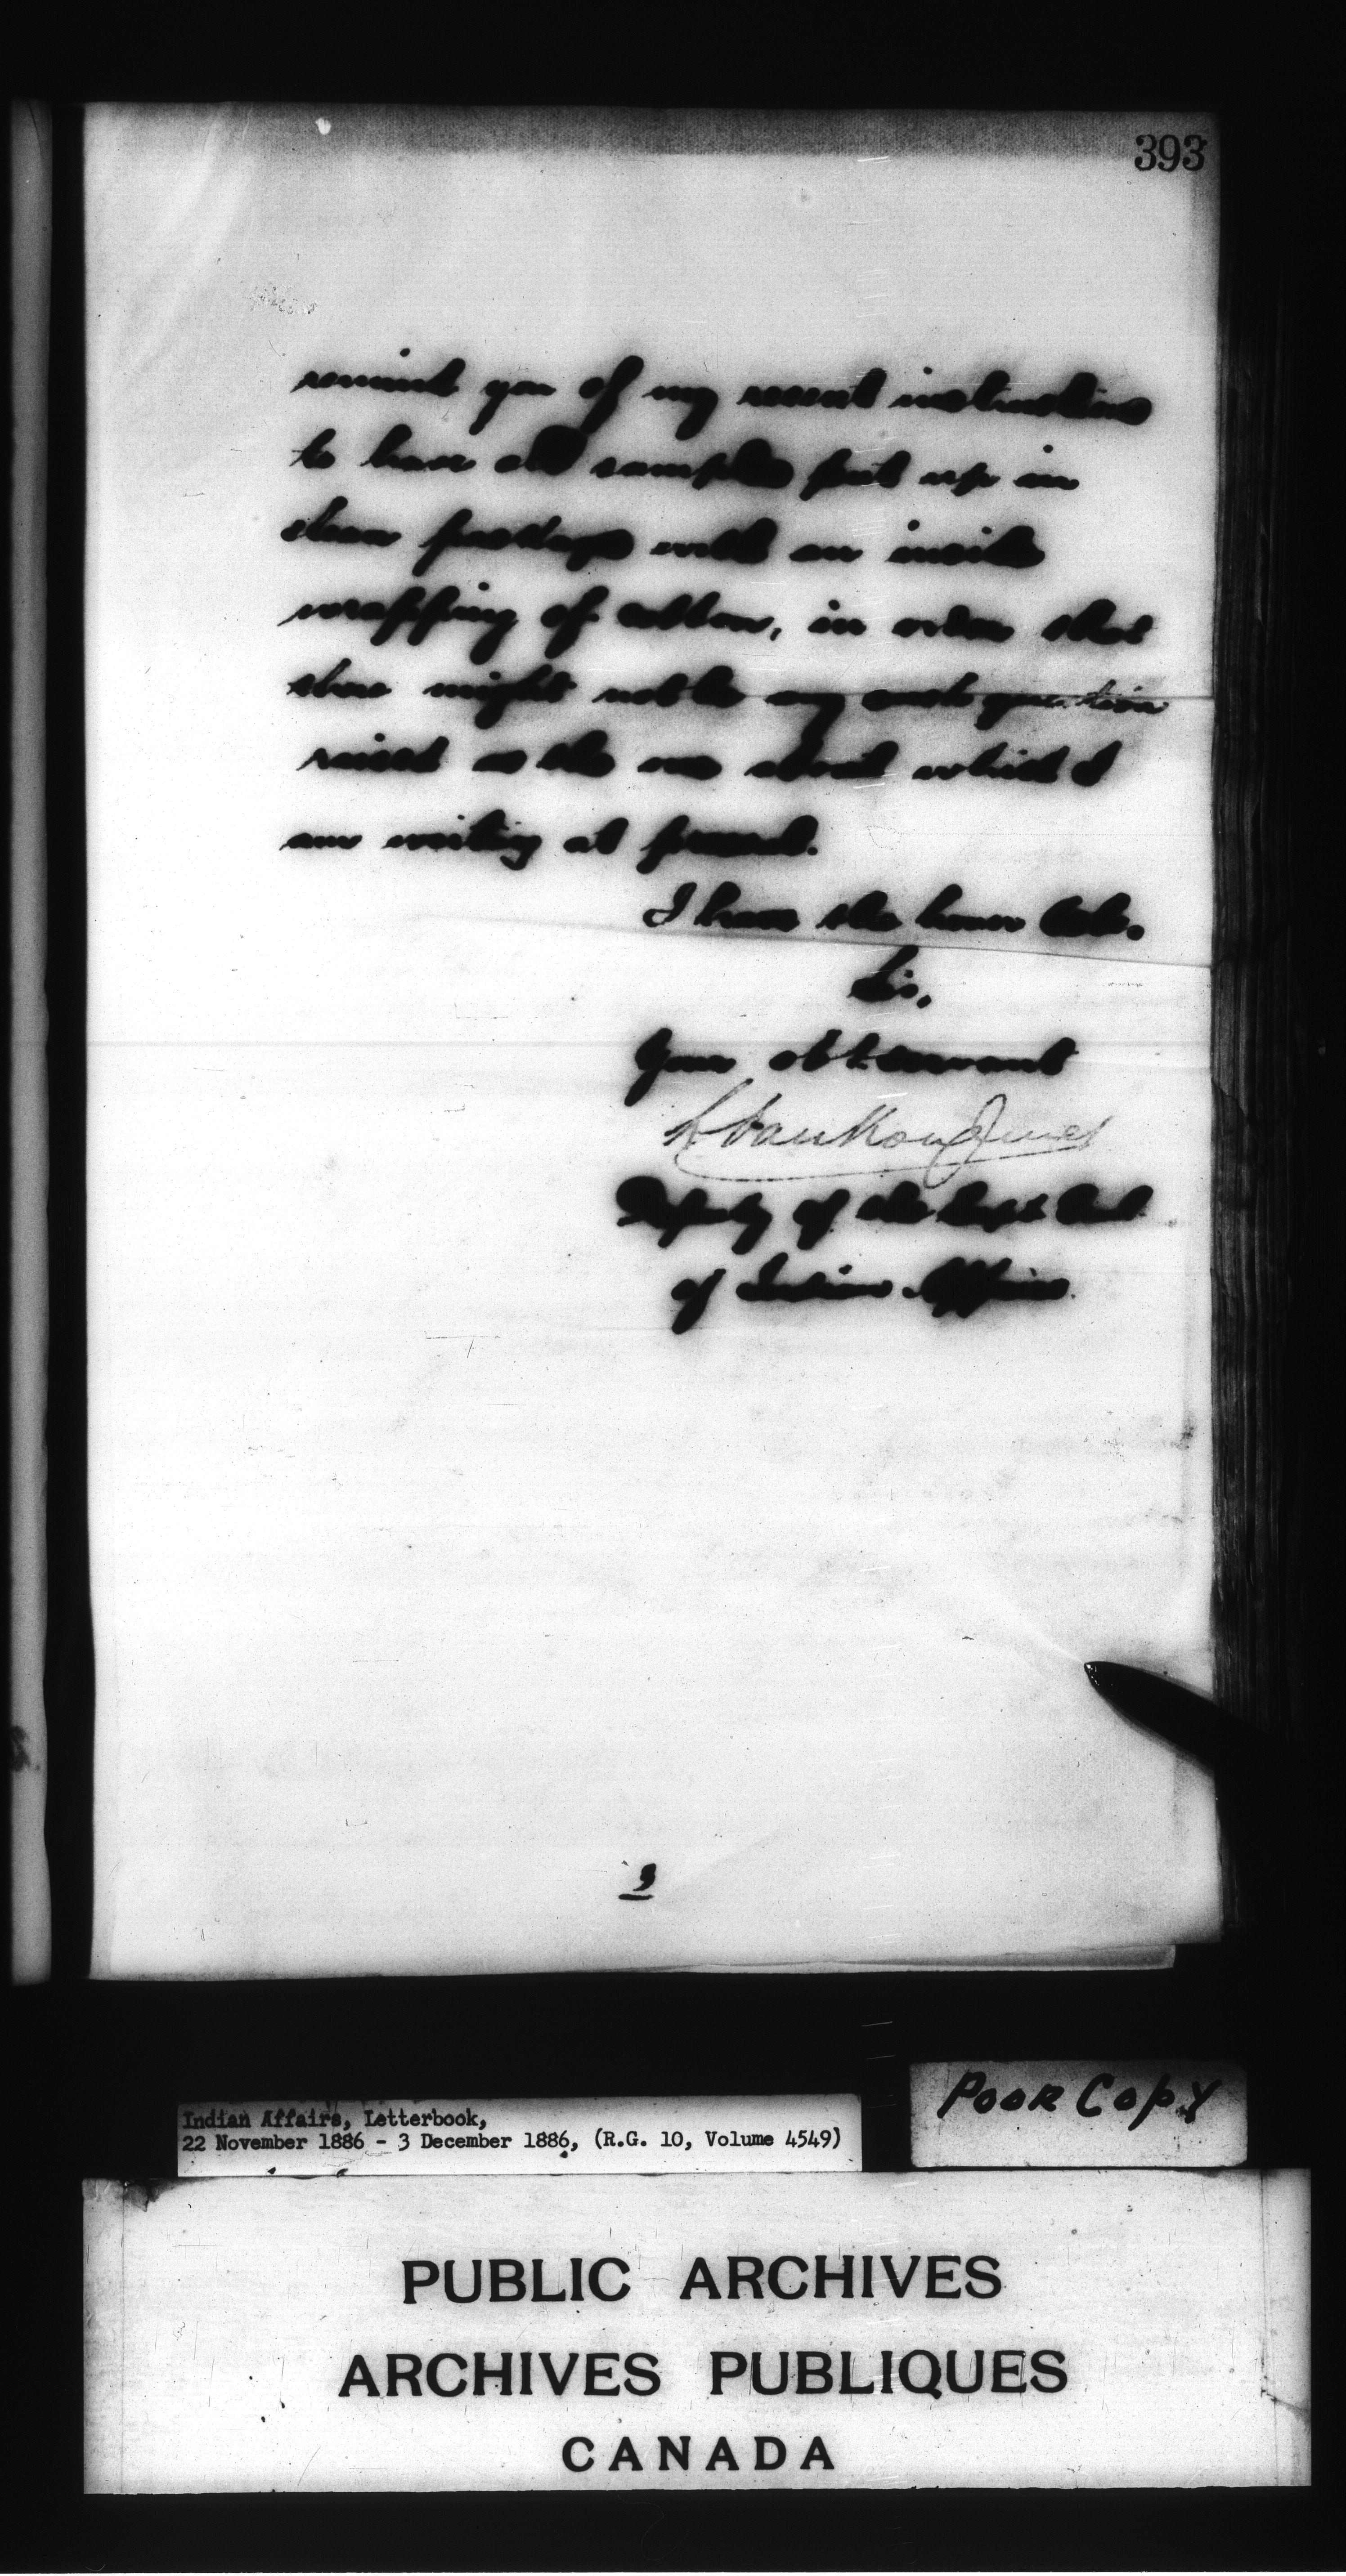 393
remind you of my recent instructions
to have all samples put up in
clean packages with an inside
wrapping of cotton, in order that
there might not be any such question
raised as the one about which I
am writing at present.
I have the honor to be.
Sir,
Your obt servant
L VanKoughnet
Deputy of the Supt Genl
of Indian Affairs.
3
Poor Copy
Indian Affairs, Letterbook,
22 November 1886 - 3 December 1886, (R.G. 10, Volume 4549)
PUBLIC ARCHIVES
ARCHIVES PUBLIQUES
CANADA